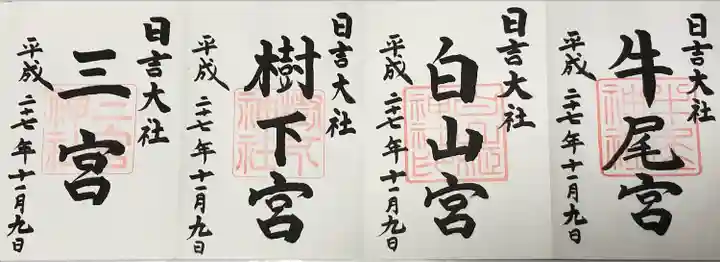 日吉大社
牛尾宮
平成二十七年十一月九日
日吉大社
白山宮
平成二十七年十一月九日
日吉大社
樹下宮
平成二十七年十一月九日
日吉大社
三宮
平成二十七年十一月九日